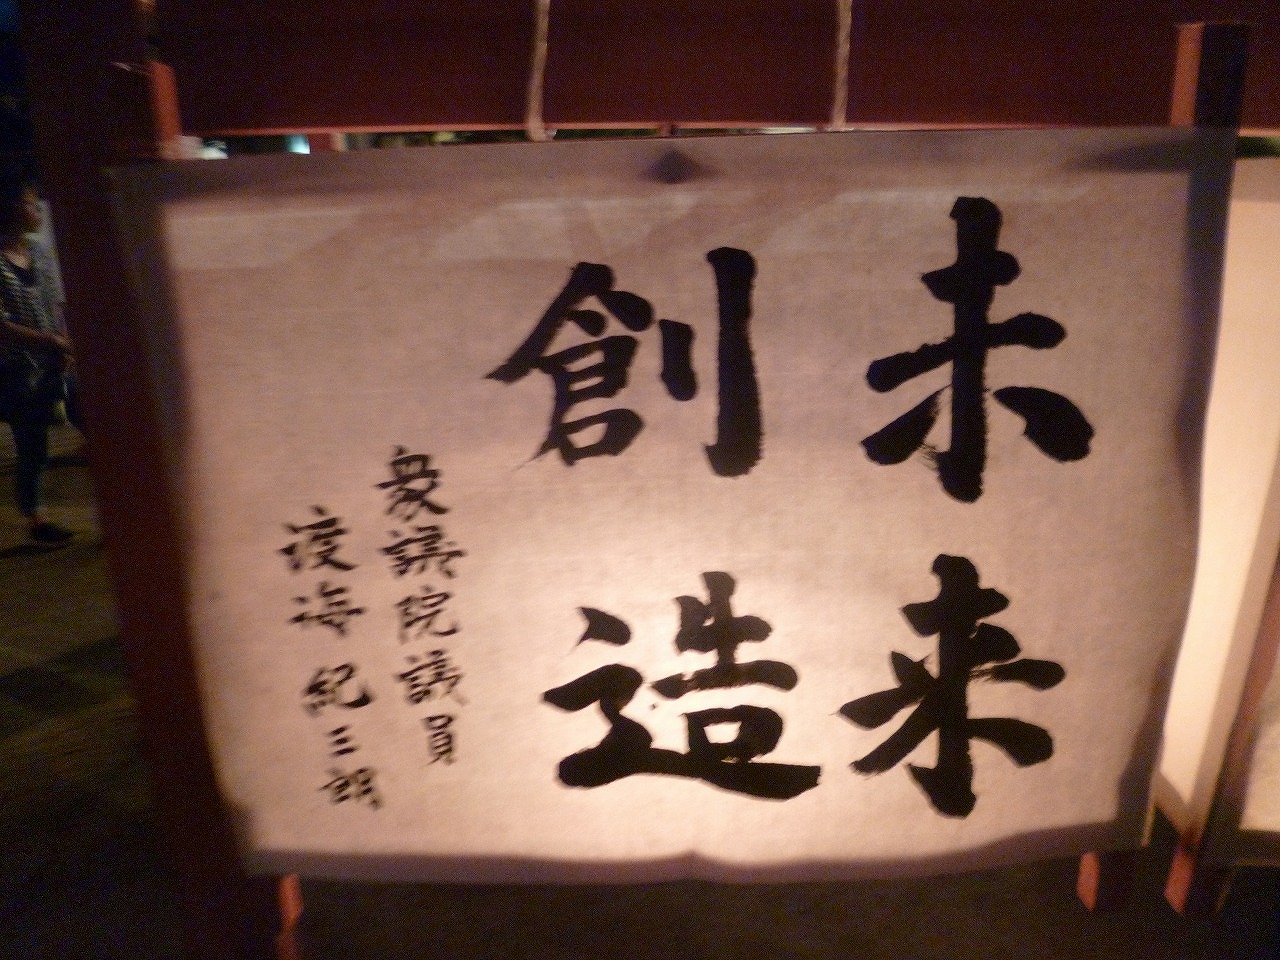 未来
創造
衆議院議員
渡海紀三朗